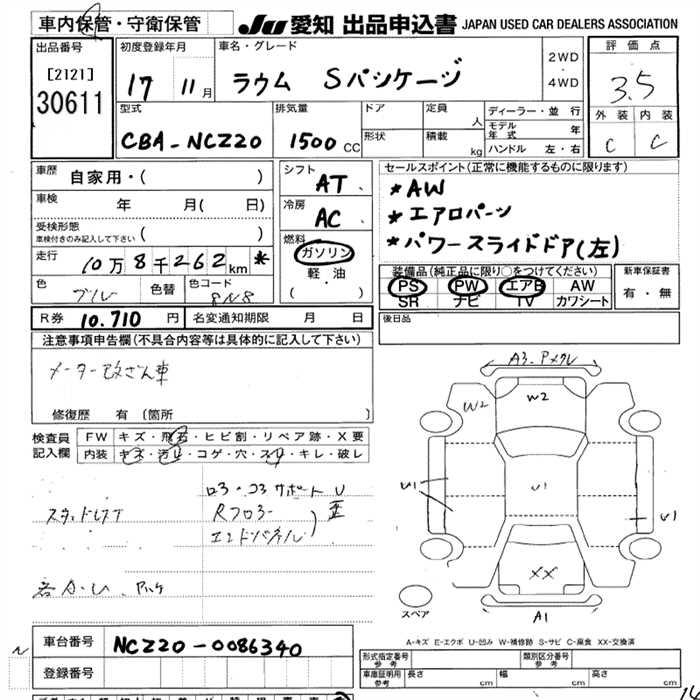 車内保管・守衛保管
JU 愛知 出品申込書 JAPAN USED CAR DEALERS ASSOCIATION
出品番号
[2121]
30611
初度登録年月
17 11月
車名・グレード
ラウム Sパッケージ
2WD
・
4WD
評価点
3.5
外装 内装
C C
型式
CBA-NCZ20
排気量
1500 CC
ドア
形状
定員
人
積載
kg
ディーラー・並行
モデル年式 年
ハンドル 左・右
車歴
自家用・( )
車検
年 月( 日)
受検形態
車検付きのみ記入して下さい ( )
走行
10万8千262km *
色
色替
色コード
8N8
シフト
AT
冷房
AC
燃料
ガソリン
軽・油
( )
セールスポイント(正常に機能するものに限ります)
*AW
*エアロパーツ
*パワースライドドア(左)
装備品(純正品に限り○をつけてください)
PS PW エアB AW
SR ナビ TV カワシート
新車保証書
有・無
R券 10.710 円
名変通知期限 月 日
後日品
注意事項申告欄(不具合内容等は具体的に記入して下さい)
メーター改ざん車
修復歴 有 〔箇所 〕
検査員
記入欄
FW キズ・飛石・ヒビ割・リペア跡・X要
内装 キズ・汚れ・コゲ・穴・スレ・キレ・破レ
ロ3・コ3 サポート U
Rフロ3ー
エンドパネル) 歪
A3-Pメクレ
W2
W2
U1
U1
U1
XX
A1
スペア
A-キズ E-エクボ U-凹み W-補修跡 S-サビ C-腐食 XX-交換済
車台番号 NCZ20-0086340
登録番号
形式指定番号
参考
類別区分番号
参考
車庫証明用
参考
長さ
cm
幅
cm
高さ
cm